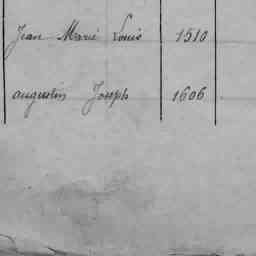 Jean Marie Louis 1510
augustin Joseph 1606